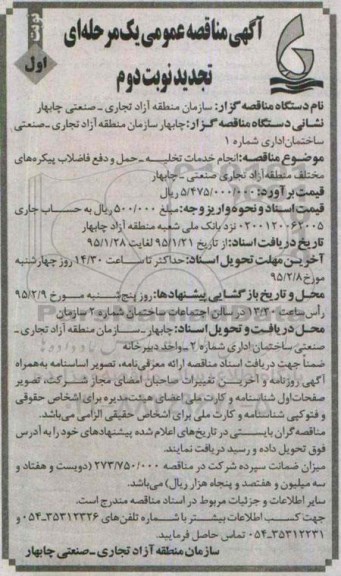 نوبت
اول
آگهی مناقصه عمومی یک مرحله‌ای
تجدید نوبت دوم
نام دستگاه مناقصه گزار: سازمان منطقه آزاد تجاری ـ صنعتی چابهار
نشانی دستگاه مناقصه گزار: چابهار سازمان منطقه آزاد تجاری ـ صنعتی
ساختمان اداری شماره ۱
موضوع مناقصه: انجام خدمات تخلیه ـ حمل و دفع فاضلاب پیکره‌های
مختلف منطقه آزاد تجاری صنعتی ـ چابهار
قیمت برآورد: ۵/۴۷۵/۰۰۰/۰۰۰ ریال
قیمت اسناد و نحوه واریز وجه: مبلغ ۵۰۰/۰۰۰ ریال به حساب جاری
۰۲۰۰۱۲۰۰۶۲۰۰۵ نزد بانک ملی شعبه منطقه آزاد چابهار
تاریخ دریافت اسناد: از تاریخ ۹۵/۱/۲۱ لغایت ۹۵/۱/۲۸
آخرین مهلت تحویل اسناد: حداکثر تا ساعت ۱۴/۳۰ روز چهارشنبه
مورخ ۹۵/۲/۸
محل و تاریخ بازگشایی پیشنهادها: روز پنج‌شنبه مورخ ۹۵/۲/۹
رأس ساعت ۱۳/۳۰ ـ سالن اجتماعات ساختمان شماره ۲ سازمان
محل دریافت و تحویل اسناد: چابهار ـ سازمان منطقه آزاد تجاری ـ
صنعتی ساختمان اداری شماره ۲ ـ واحد دبیرخانه
ضمناً جهت دریافت اسناد مناقصه ارائه معرفی‌نامه، تصویر اساسنامه به‌همراه
آگهی روزنامه و آخرین تغییرات صاحبان امضای مجاز شرکت، تصویر
صفحات اول شناسنامه و کارت ملی اعضای هیئت‌مدیره برای اشخاص حقوقی
و فتوکپی شناسنامه و کارت ملی برای اشخاص حقیقی الزامی می‌باشد.
مناقصه‌گران بایستی در تاریخ‌های اعلام شده پیشنهادهای خود را به آدرس
فوق تحویل داده و رسید دریافت نمایند.
میزان ضمانت سپرده شرکت در مناقصه ۲۷۳/۷۵۰/۰۰۰ (دویست و هفتاد و
سه میلیون و هفتصد و پنجاه هزار ریال) می‌باشد.
سایر اطلاعات و جزئیات مربوط در اسناد مناقصه مندرج است.
جهت کسب اطلاعات بیشتر با شماره تلفن‌های ۳۵۳۱۲۳۲۶ـ۰۵۴ و
۳۵۳۱۲۲۳۱ـ۰۵۴ تماس حاصل فرمایید.
سازمان منطقه آزاد تجاری ـ صنعتی چابهار